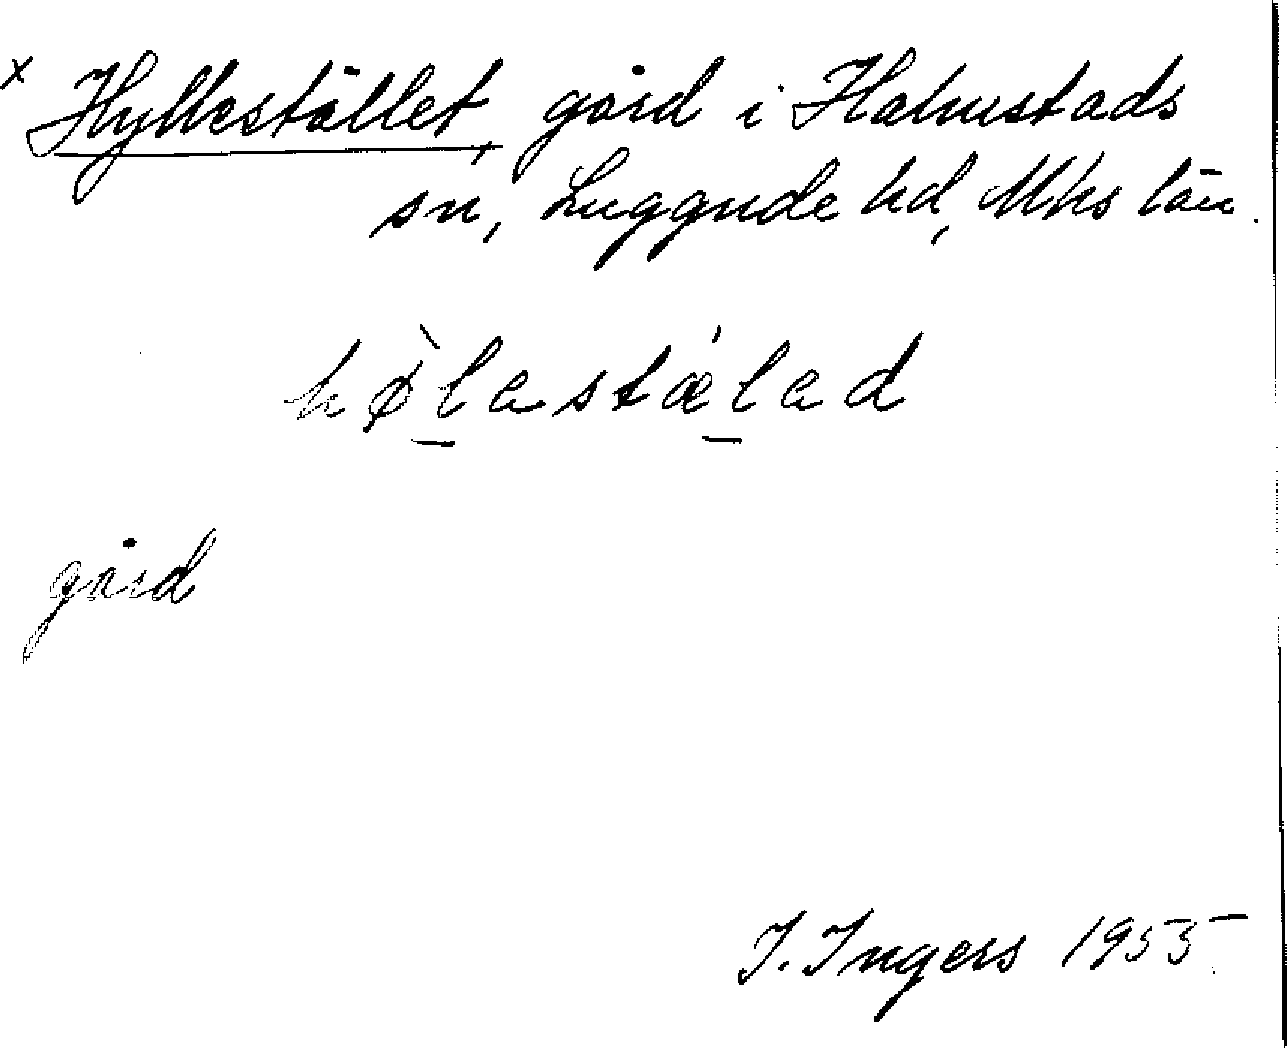 x Hyllestället, gård i Halmstads
sn, Luggude hd, Mhs län.
hø̀lastǽlad
gård
I. Ingers 1955